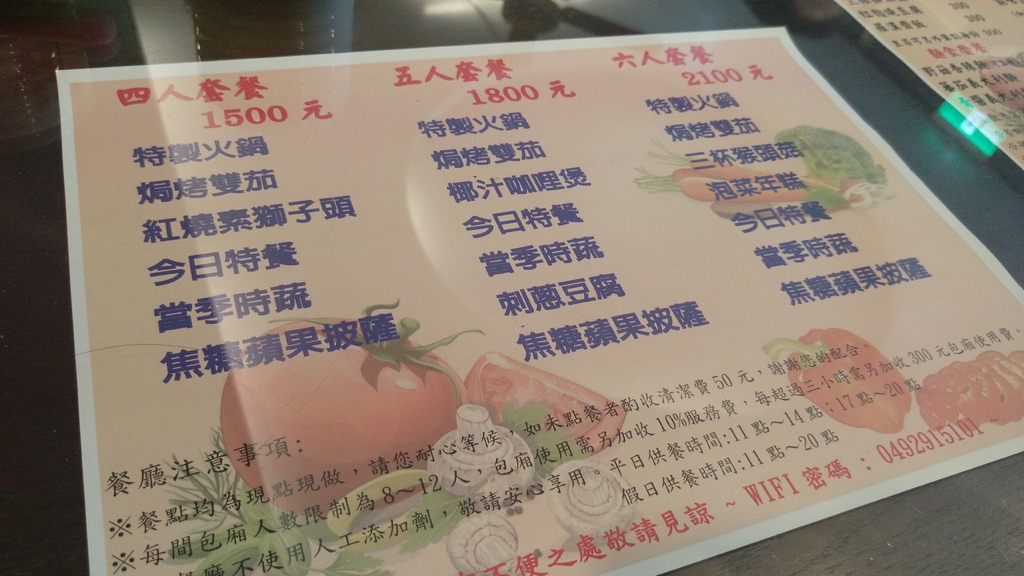 四人套餐
1500 元
特製火鍋
焗烤雙茄
紅燒素獅子頭
今日特餐
當季時蔬
焦糖蘋果披薩
五人套餐
1800 元
特製火鍋
焗烤雙茄
椰汁咖哩煲
今日特餐
當季時蔬
刺蔥豆腐
焦糖蘋果披薩
六人套餐
2100 元
特製火鍋
焗烤雙茄
三杯猴頭菇
泡菜年糕
今日特餐
當季時蔬
焦糖蘋果披薩
餐廳注意事項:
※餐點均為現點現做，請您耐心等候，如未點餐者酌收清潔費50元，謝謝您的配合。
※每間包廂人數限制為8～12人，包廂使用需另加收10%服務費，每超過三小時需另加收300元包廂使用費。
餐廳不使用人工添加劑，敬請安心享用。平日供餐時間:11點～14點；17點～20點
假日供餐時間:11點～20點
不便之處敬請見諒 ~ WIFI 密碼 : 0492915101
300
300
300